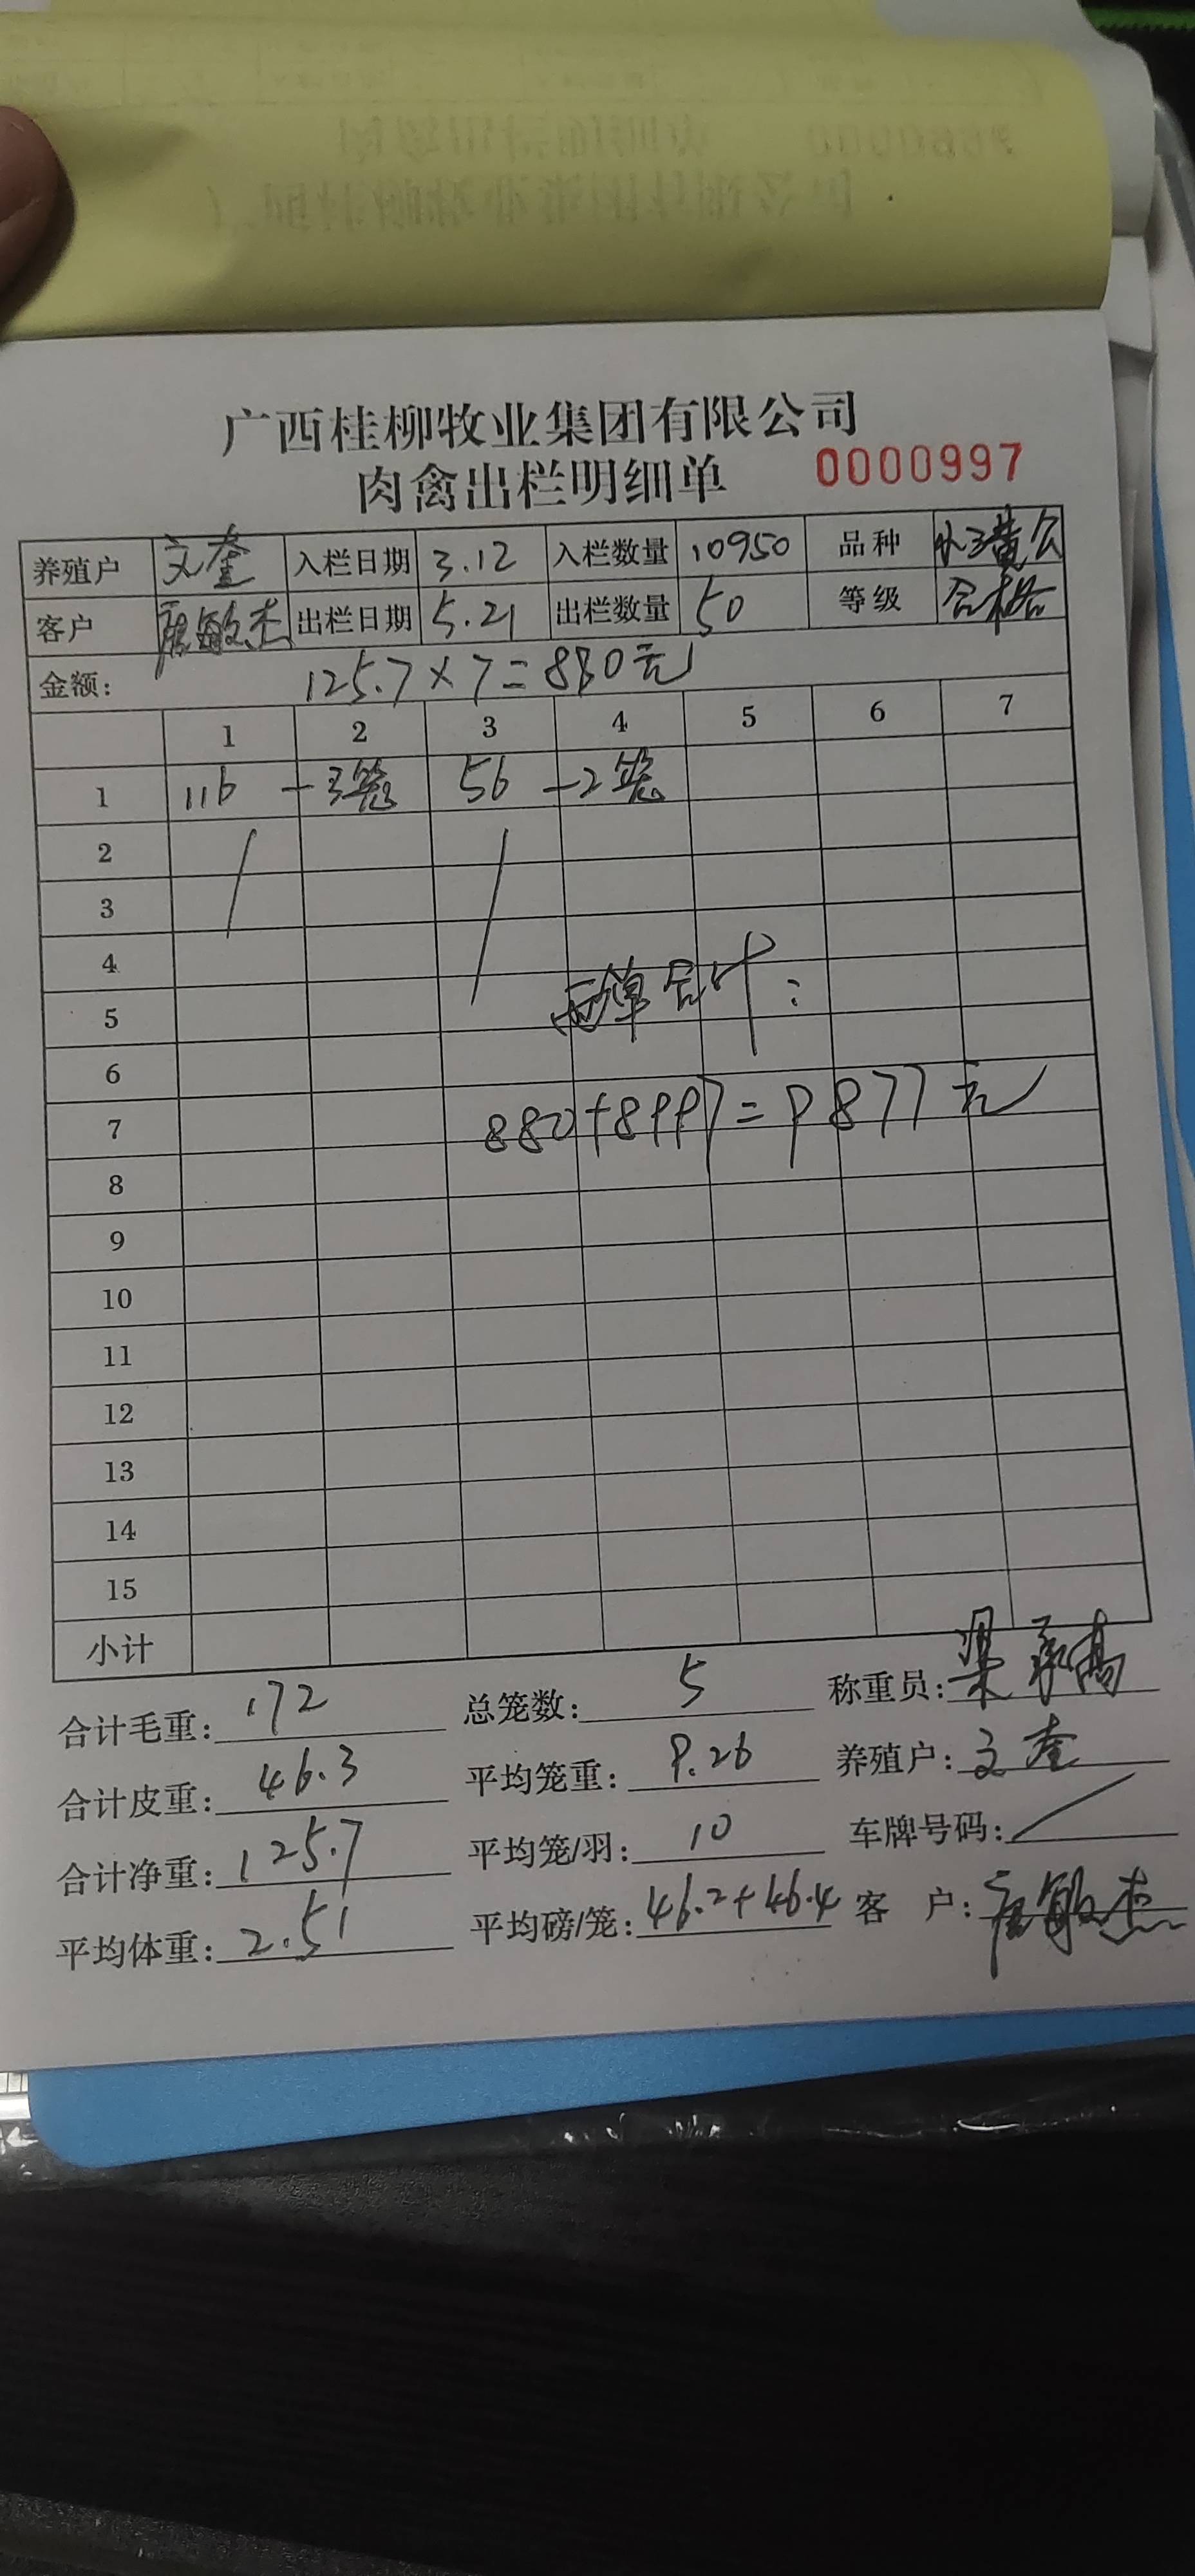 广西桂柳牧业集团有限公司
肉禽出栏明细单 0000997
养殖户 文奎 入栏日期 3.12 入栏数量 10950 品种 小三黄公
客户 唐敏杰 出栏日期 5.21 出栏数量 50 等级 合格
金额: 125.7×7=880元
1 2 3 4 5 6 7
1 116 -3笼 56 -2笼
2
3
4
两单合计:
5
6
7 880+8997=9877元
8
9
10
11
12
13
14
15
小计
合计毛重: 172 总笼数: 5 称重员: 梁承高
合计皮重: 46.3 平均笼重: 9.26 养殖户: 文奎
合计净重: 125.7 平均笼/羽: 10 车牌号码: /
平均体重: 2.51 平均磅/笼: 46.2+46.4 客 户: 唐敏杰